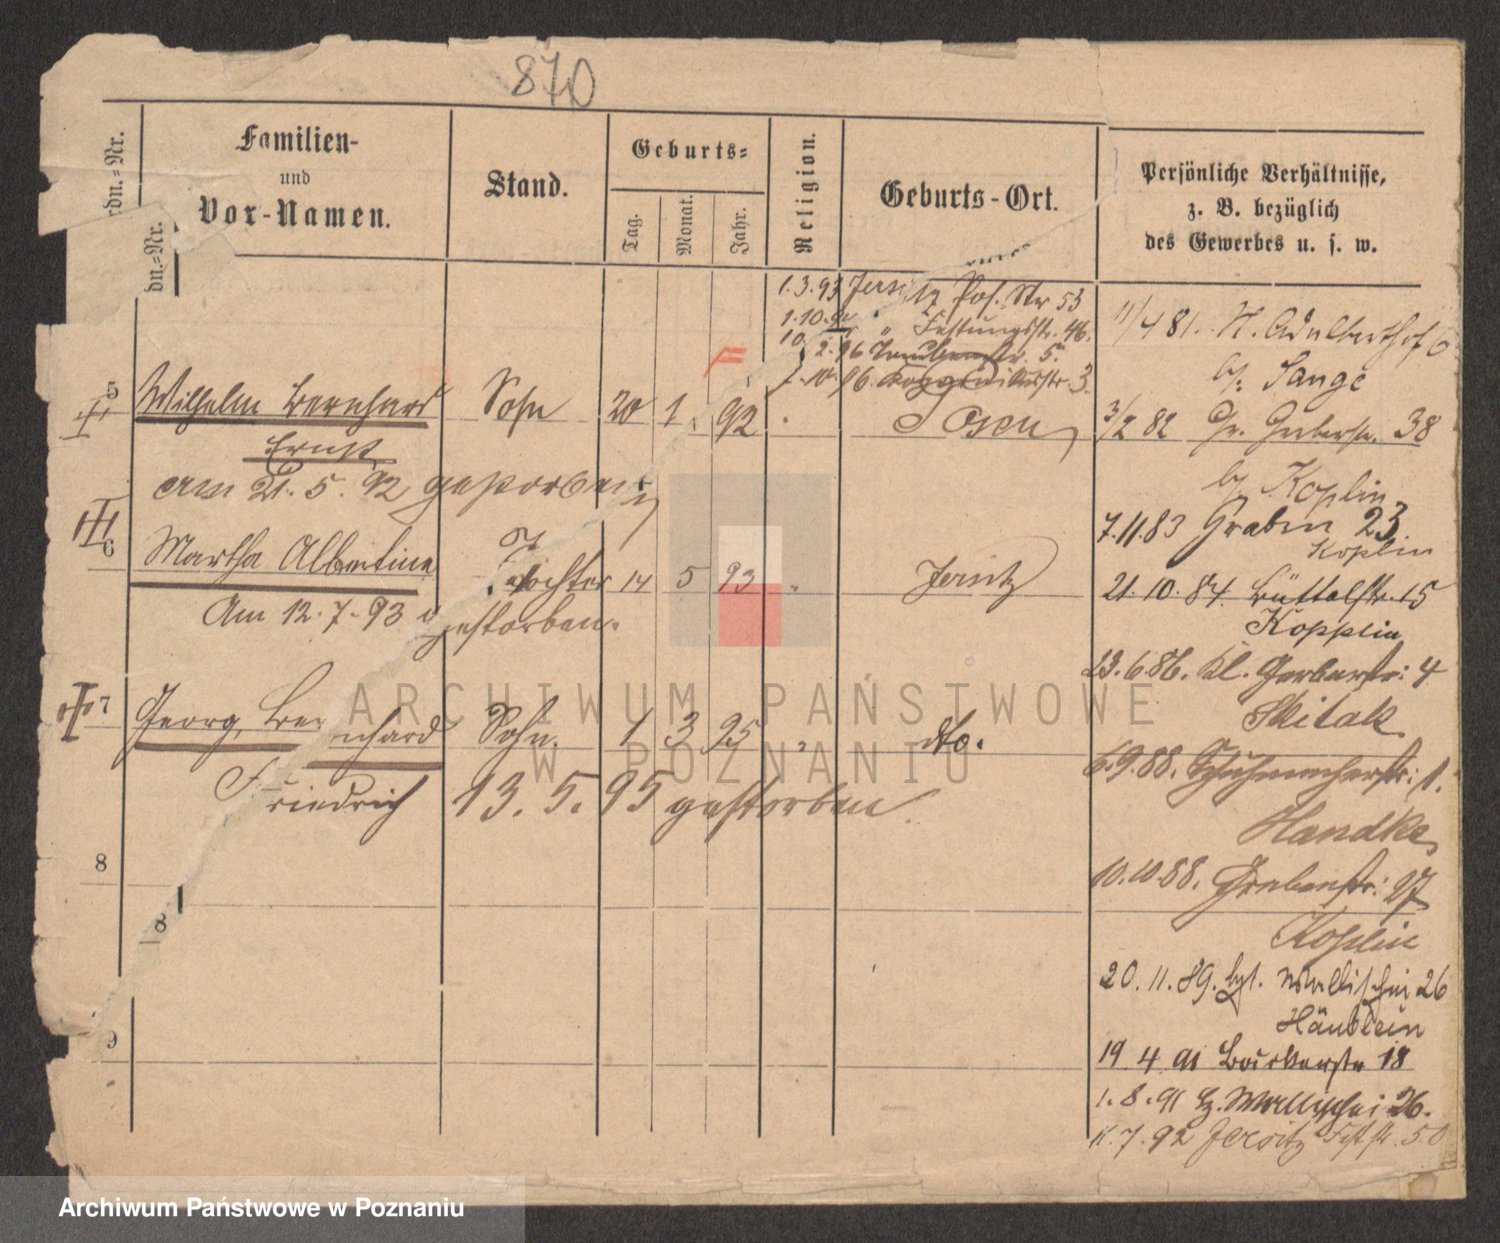 870
Ordn.-Nr.
dn.-Nr.
Familien-
und
Vor-Namen.
Stand.
Geburts-
Tag.
Monat.
Jahr.
Religion.
Geburts-Ort.
Persönliche Verhältnisse,
z. B. bezüglich
des Gewerbes u. s. w.
1.3.93 Jersitz Pos. Str 53
1.10. " Festungsstr. 46.
10 2.96 5.
1.10.96. 3.
F
5 Wilhelm Bernhard Sohn 20 1 92 Posen
Ernst
am 21.5.92 gestorben
6 Martha Albertine Tochter 14 5 93 " Jersitz
Am 12.7.93 gestorben.
7 Georg, Bernhard Sohn. 1 3 95 " dto.
Friedrich 13.5.95 gestorben.
8
8
9
11/4 81. St. Adalberthof 6
b/. Lange
3/2 82 Gr. Gerberstr. 38
b/. Koplin
7.11.83 Graben 23
Koplin
21.10.84. Büttelstr. 15
Kopplin
23.6.86. Kl. Gerberstr: 4
Skitak
6.9.88. Schuhmacherstr: 1.
Handke
10.10.88. Grabenstr: 27
Koplin
20.11.89. bz. Wallischei 26
Häuslein
19 4 91 18
1.8.91 bz. Wallischei 26.
11.7.92 Jersitz Feststr. 50
ARCHIWUM PAŃSTWOWE
W POZNANIU
Archiwum Państwowe w Poznaniu